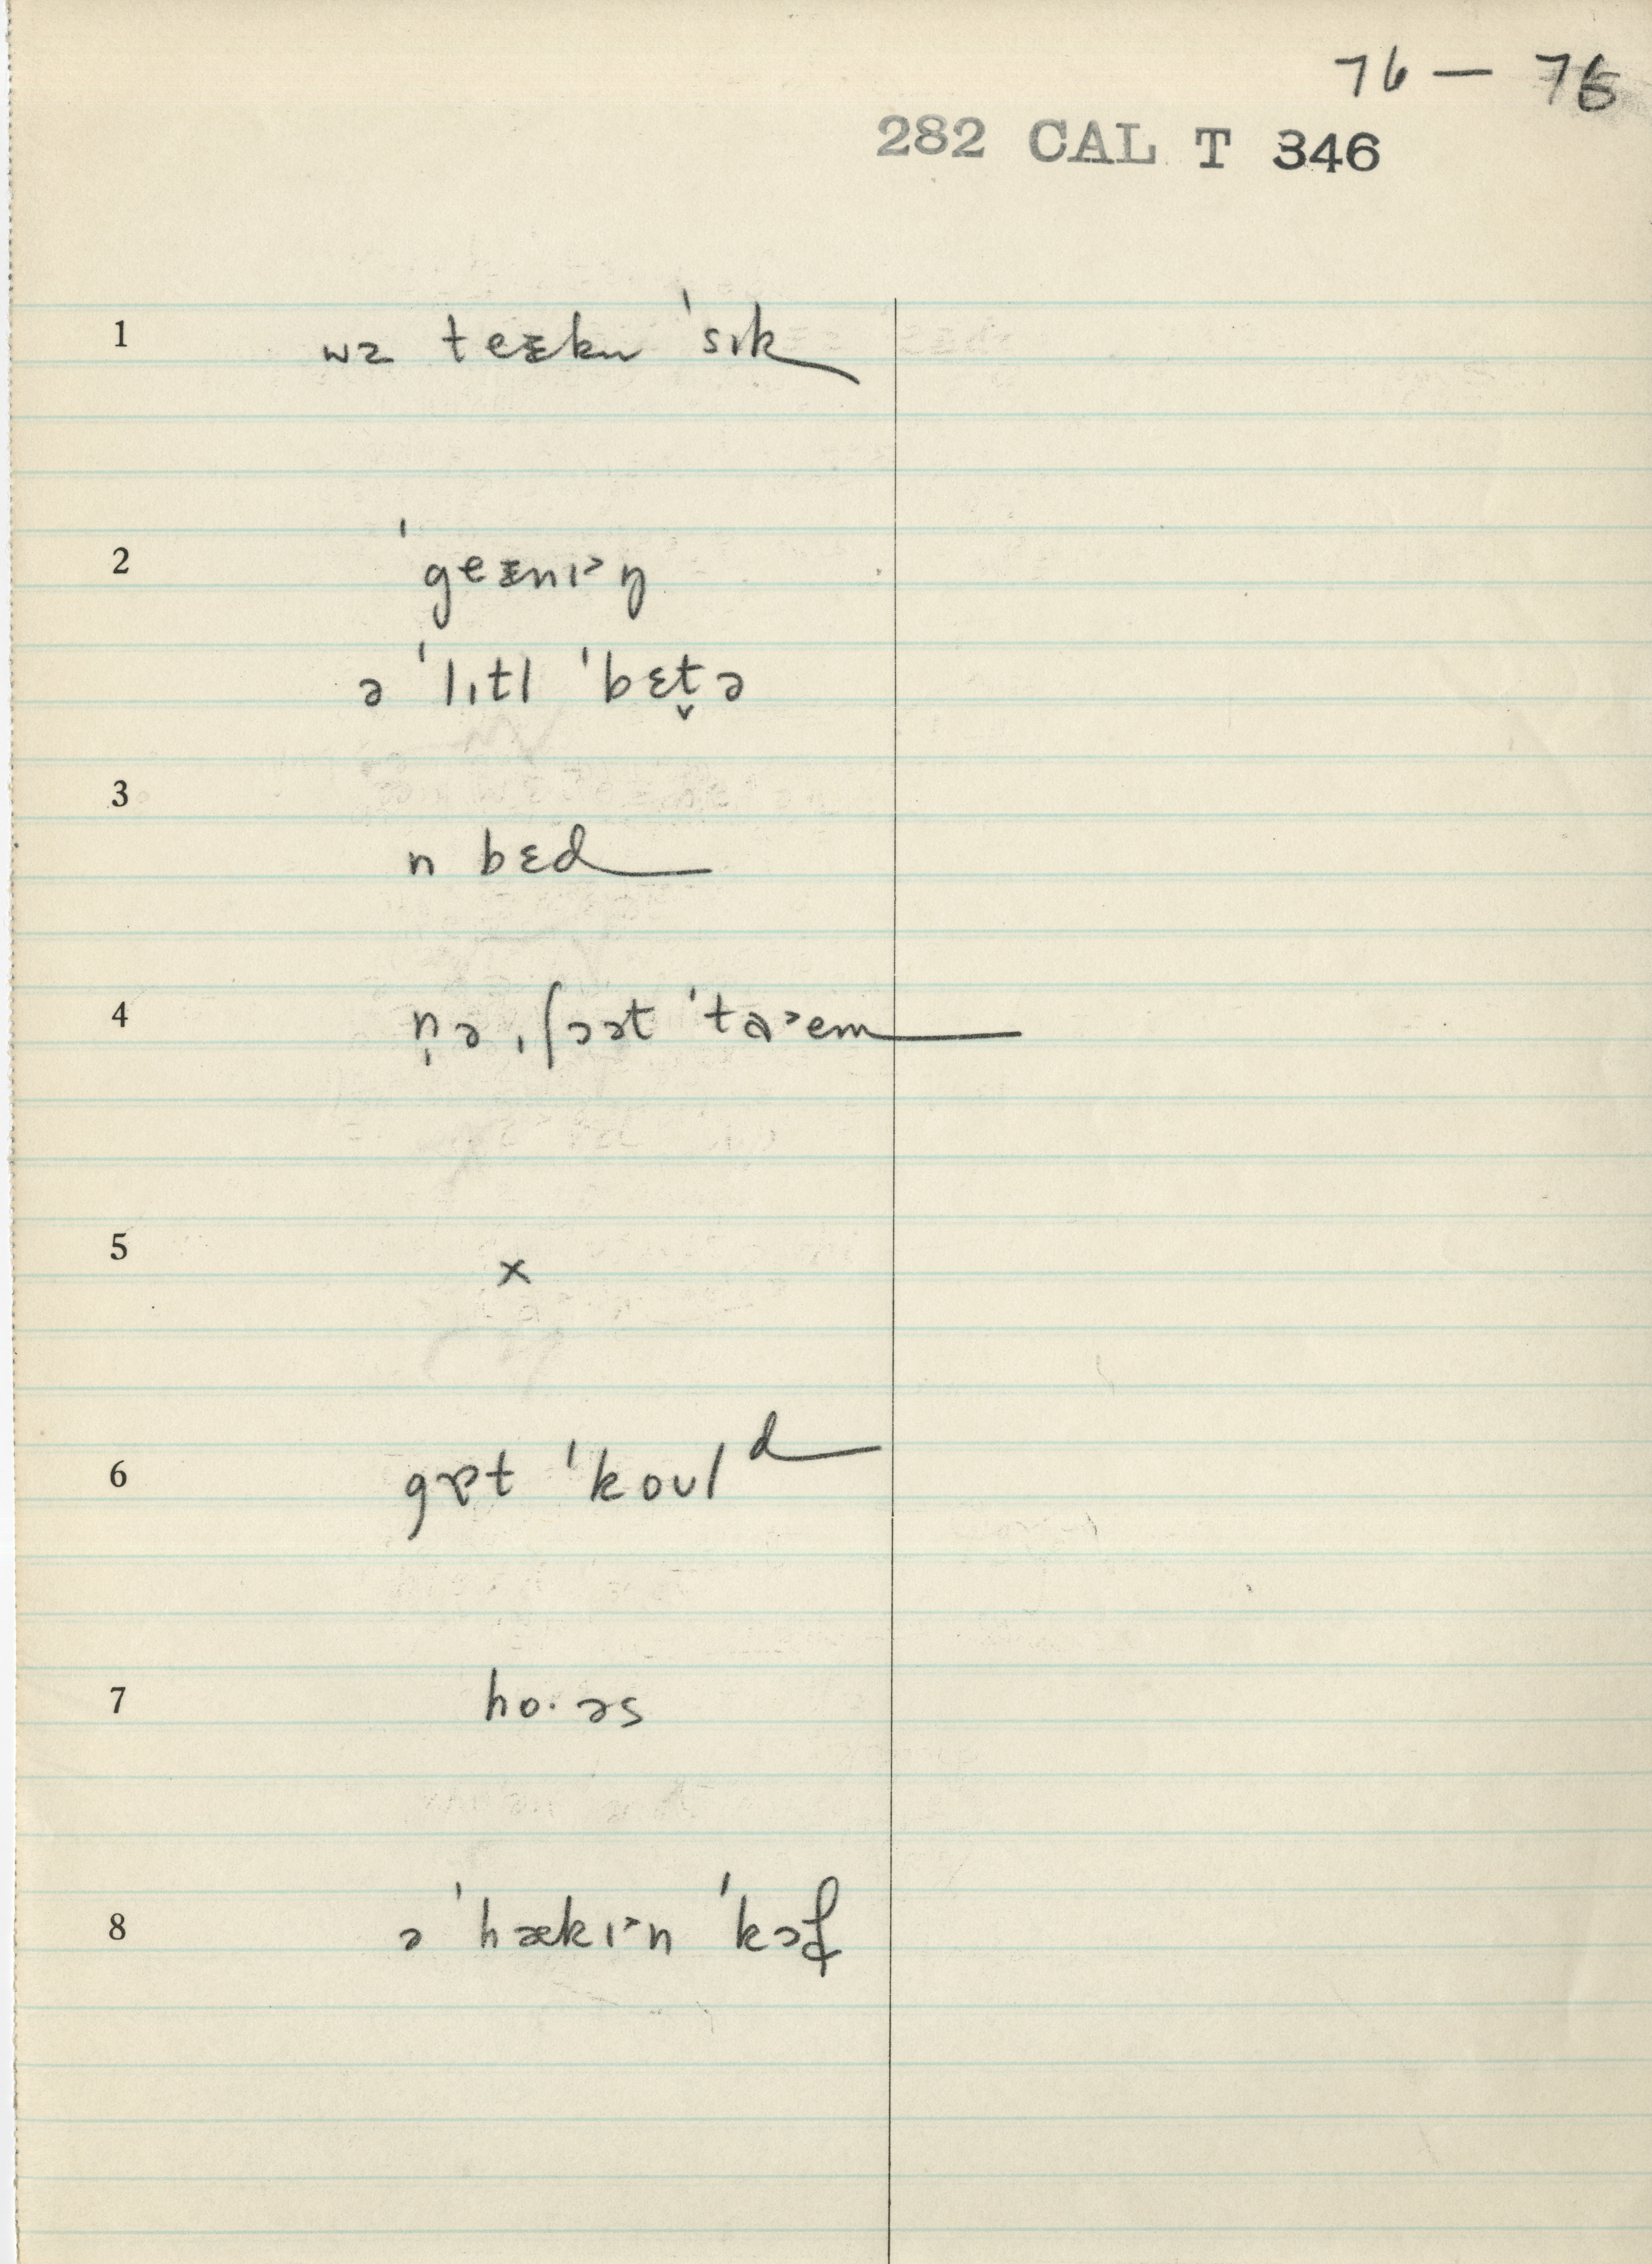 76 — 76
282 CAL T 346
1 wz teᵻkn ˈsɪk
2 ˈgeᵻnɪ˃ŋ
ə ˈlɪtl ˈbɛt̬ə
3
n bɛd
4 n̩ə ˌʃɔət ˈtɑ˃em
5 x
6 gɒt ˈkoʊlᵈ
7 ho· əs
8 ə ˈhækɪ˃n ˈkɔf